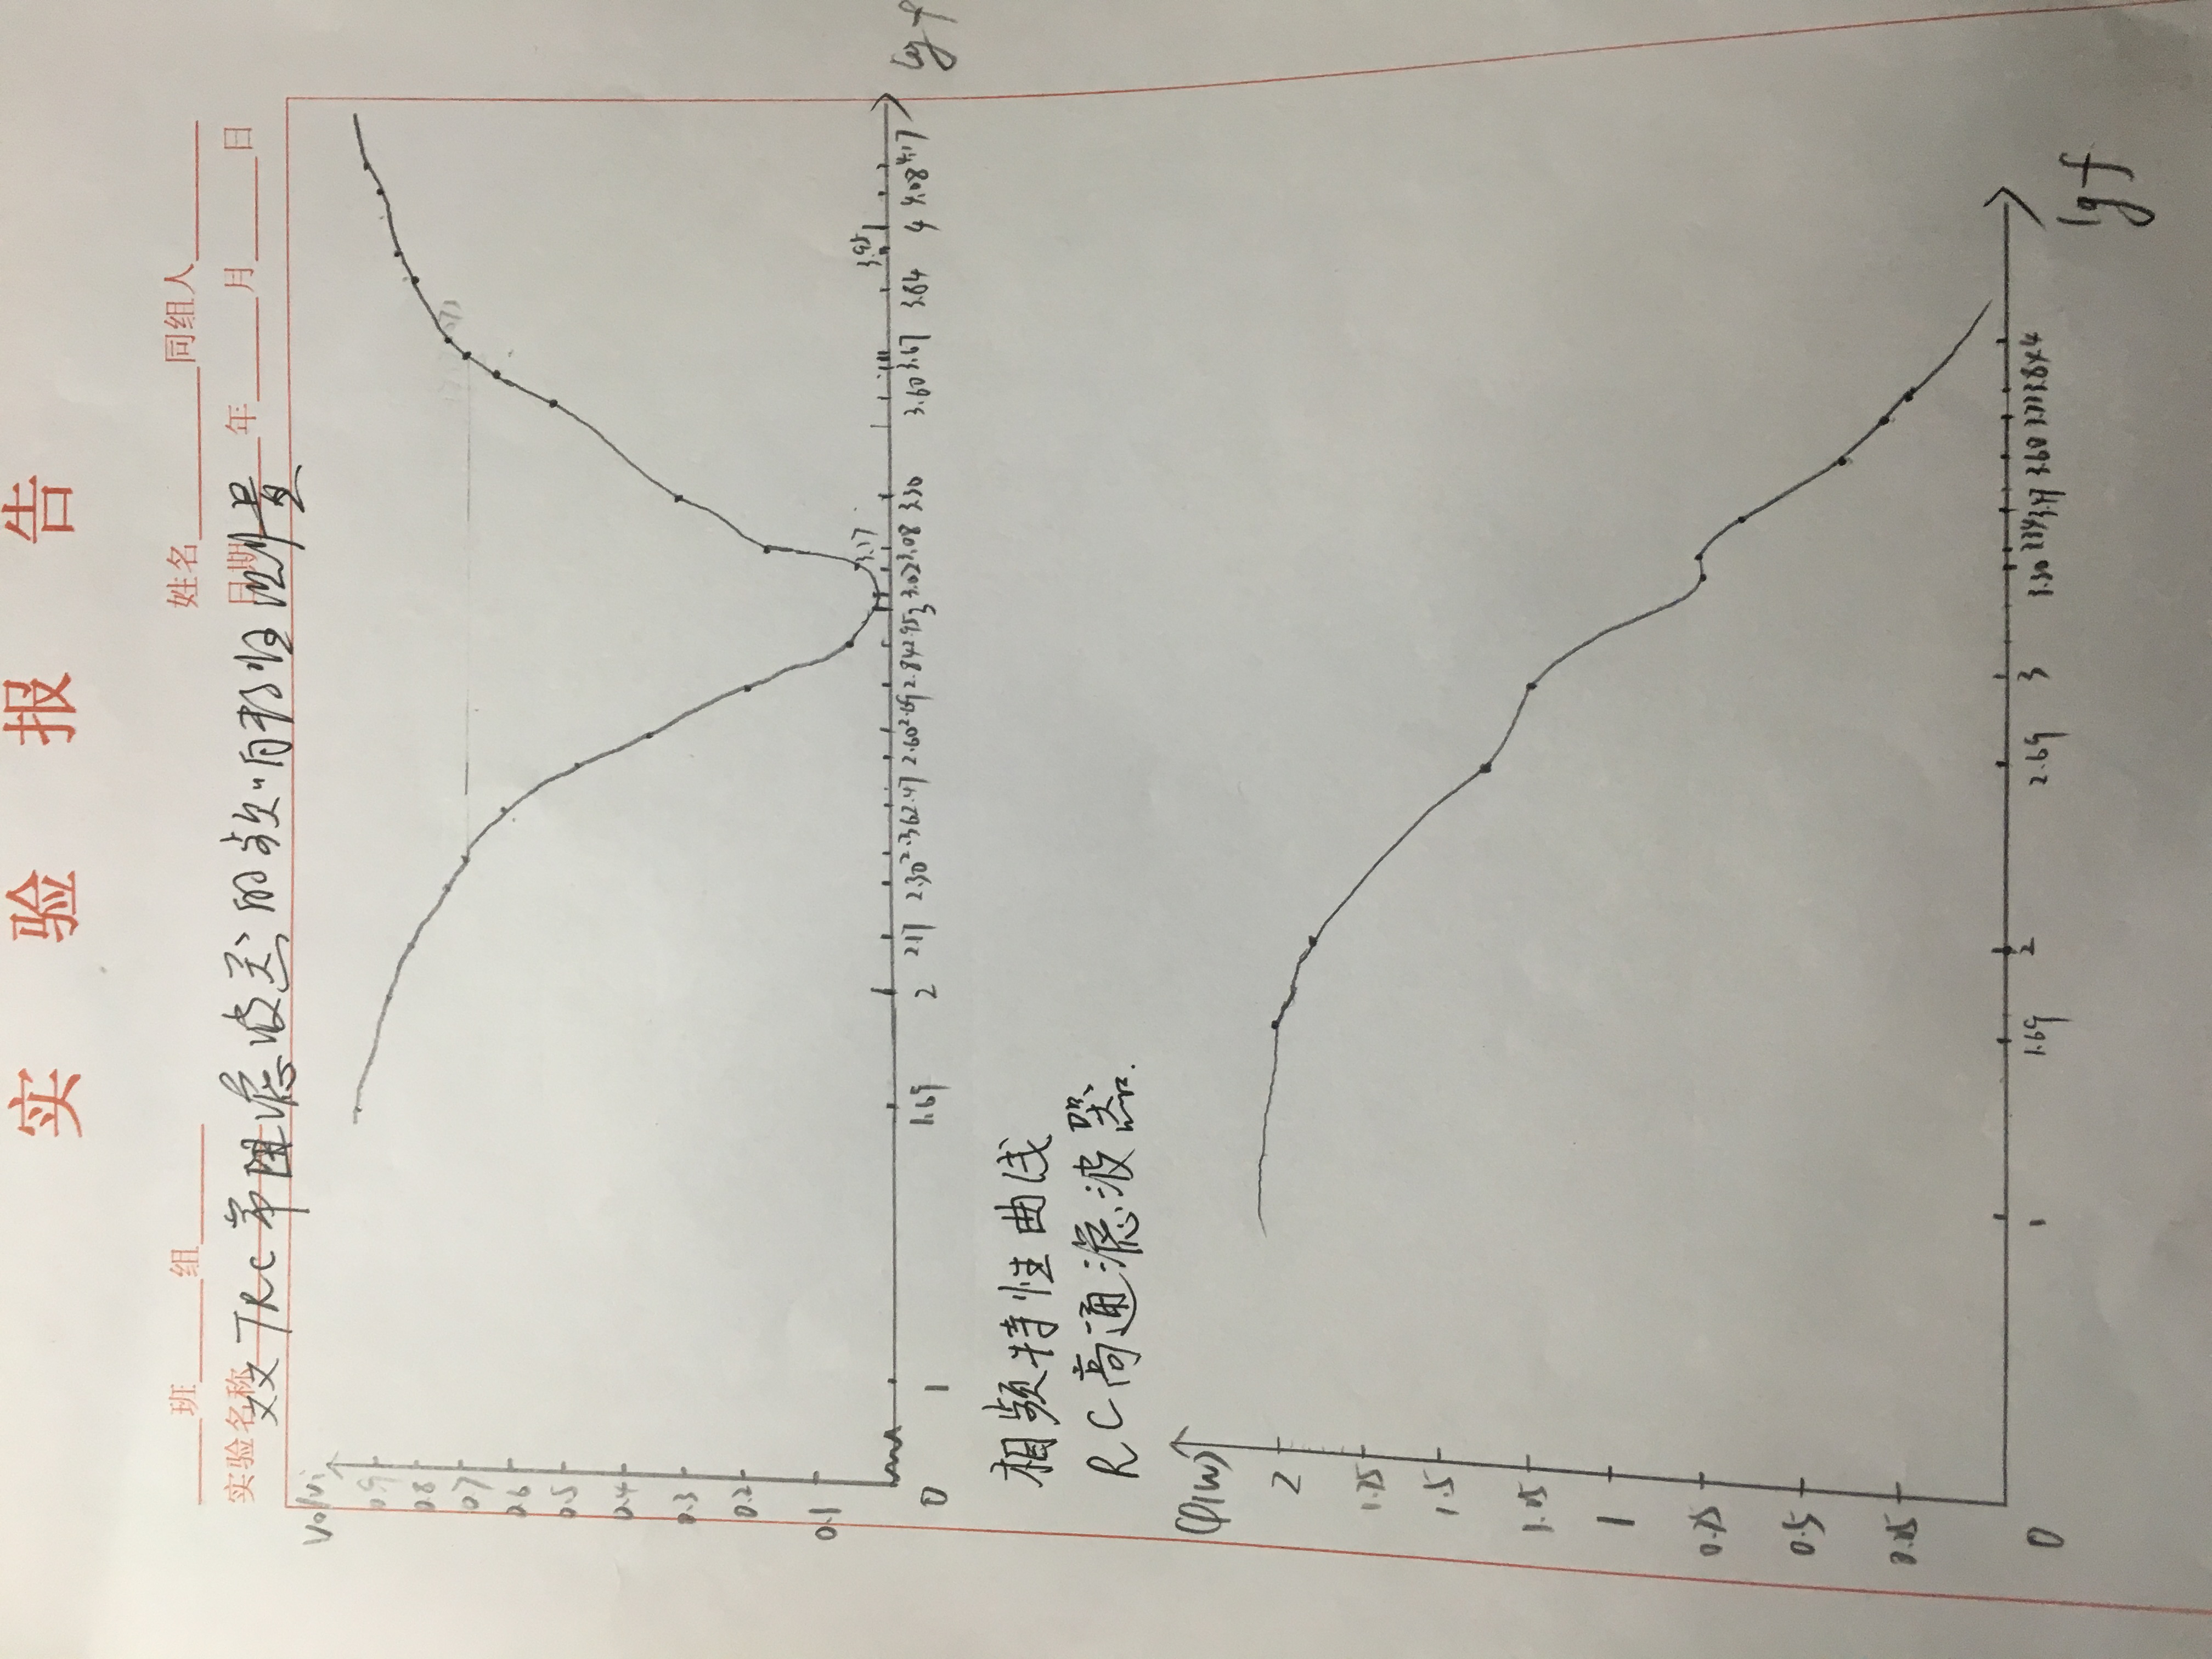 实验报告
班 组 姓名 同组人
实验名称 日期 年 月 日
双TRC带阻滤波器的频响特性测量
Vo/Vi
0.9
0.8
0.7
0.6
0.5
0.4
0.3
0.2
0.1
3.17 3.95
0 1 1.69 2 2.17 2.30 2.36 2.47 2.60 2.69 2.84 2.95 3 3.02 3.08 3.30 3.60 3.67 3.84 4 4.08 4.17 lg f
相频特性曲线
RC高通滤波器.
φ(w)
2
1.75
1.5
1.25
1
0.75
0.5
0.25
0 1 1.69 2 2.69 3 3.30 3.34 3.47 3.60 3.84 4
lg f